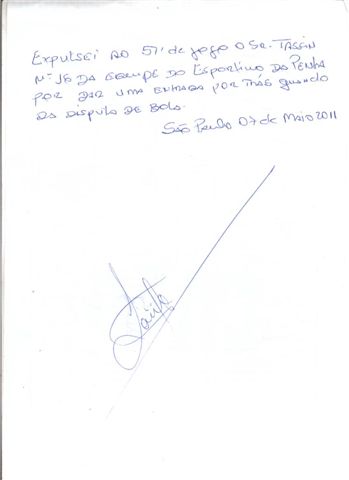 Expulsei ao 51' de jogo o Sr. Tassin
Nº 16 da equipe do Esportivo da Penha
por dar uma entrada por trás quando
da disputa de bola.
São Paulo 07 de Maio 2011